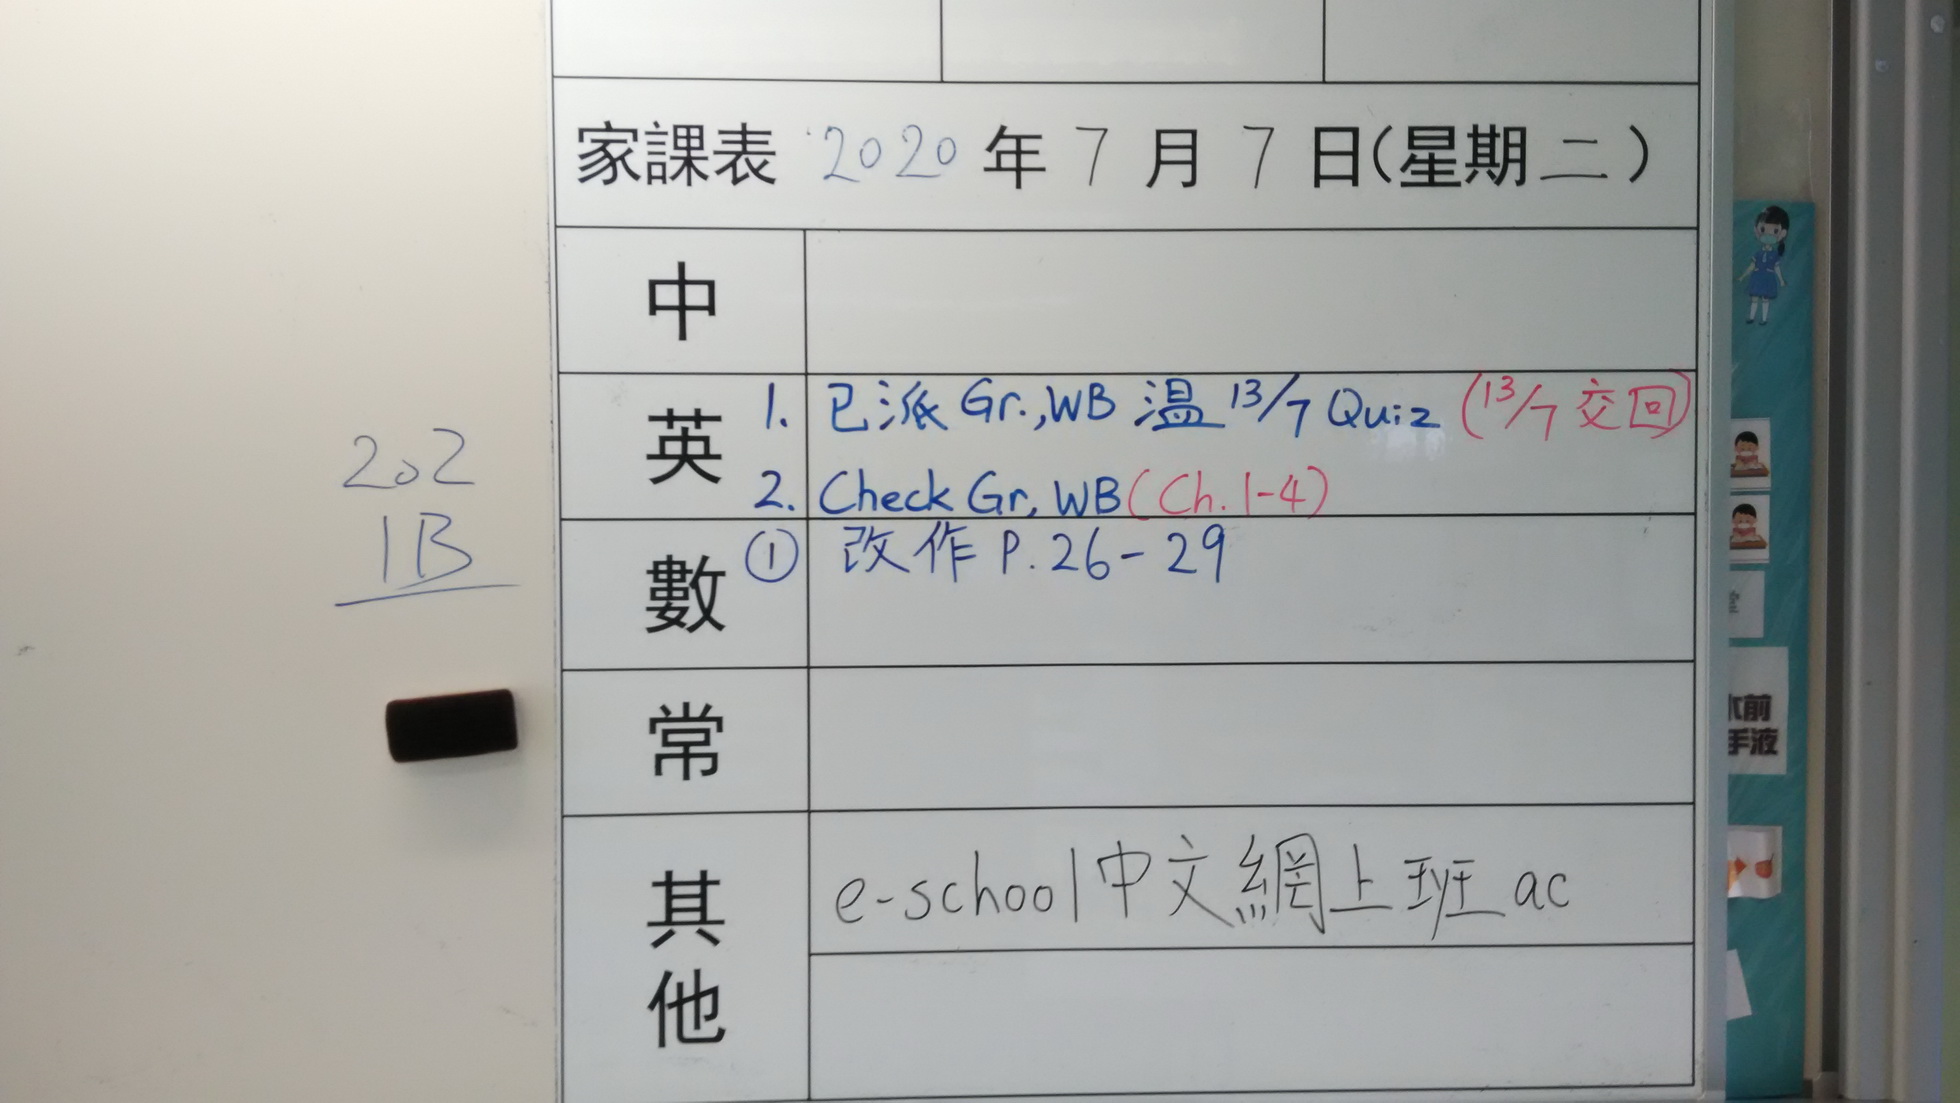 家課表 2020年7月7日(星期二)
中
英 1. 已派 Gr., WB 温 13/7 Quiz (13/7 交回)
2. Check Gr, WB (Ch. 1-4)
數 ① 改作 P. 26-29
常
其他 e-school 中文網上班 ac
202
1B
前
手液